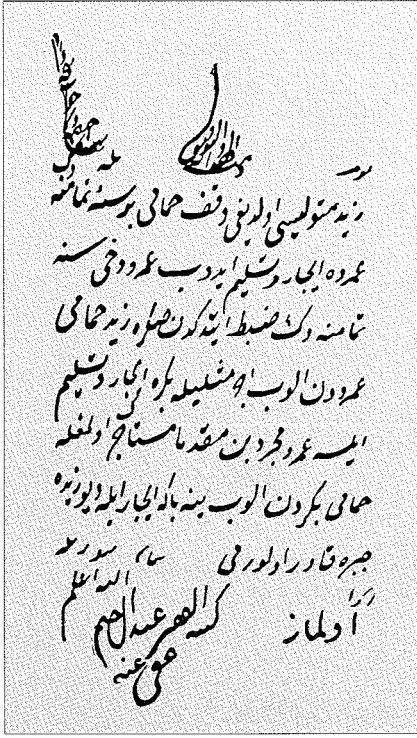 زید متولیسی اولدیغی وقف حمامی بر سنه تمامنه دك
عمروه ایجار و تسلیم ایدوب عمرو دخی سنه
تمامنه دك ضبط ایتدكدن صكره زید حمامی
عمرودن الوب اجر مثلیله بكره ایجار و تسلیم
ایلسه عمرو مجرد بن مقدما مستأجر اولمغله
حمامی بكردن الوب ینه بكا ایجار ایله دیو زیده
جبره قادر اولورمی
الله اعلم
اولماز
كتبه الفقیر عبد الرحیم
عفی عنه